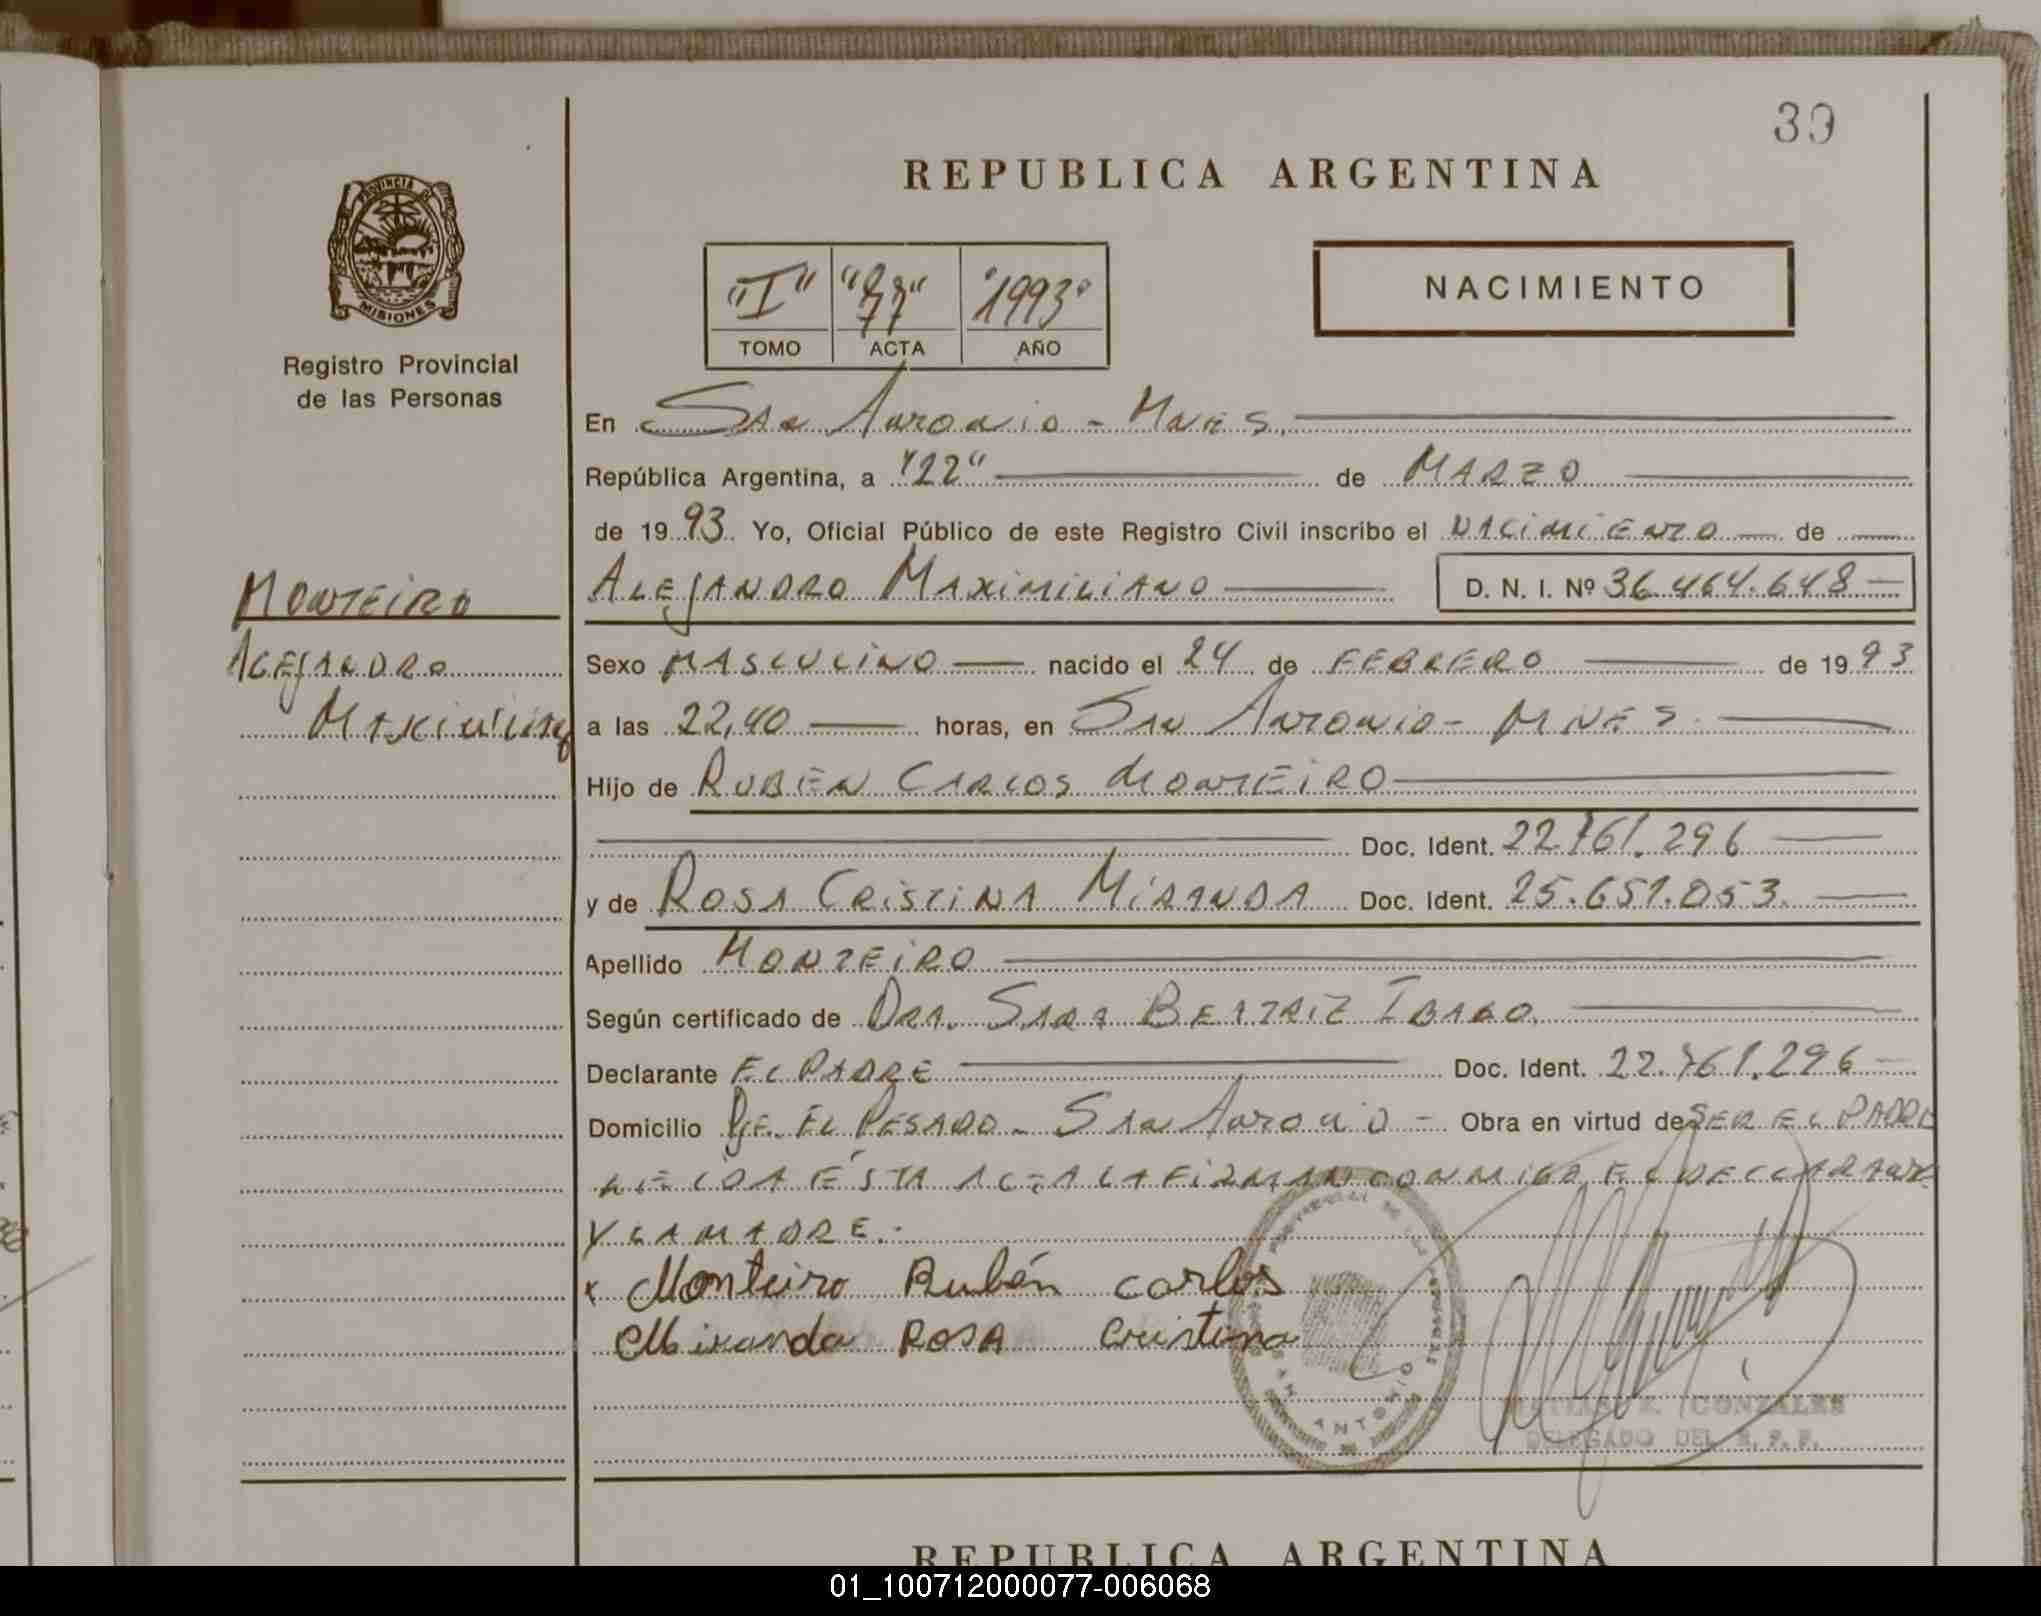 39
REPUBLICA ARGENTINA
PROVINCIA DE
MISIONES
"I" "77" "1993"
TOMO ACTA AÑO
NACIMIENTO
Registro Provincial
de las Personas
En San Antonio - Mnes.
República Argentina, a "22" de MARZO
de 1993. Yo, Oficial Público de este Registro Civil inscribo el NACIMIENTO de
ALEJANDRO MAXIMILIANO D. N. I. Nº 36.464.648
MONTEIRO
ALEJANDRO
MAXIMILIANO
Sexo MASCULINO nacido el 24 de FEBRERO de 1993
a las 22,40 horas, en SAN ANTONIO - MNES
Hijo de RUBEN CARLOS MONTEIRO
Doc. Ident. 22.761.296
y de ROSA CRISTINA MIRANDA Doc. Ident. 25.651.053.
Apellido MONTEIRO
Según certificado de DRA. SARA BEATRIZ
Declarante EL PADRE Doc. Ident. 22.761.296
Domicilio EL PESADO - SAN ANTONIO - Obra en virtud de SER EL PADRE
LEIDA ESTA ACTA LA FIRMAN CONMIGO EL DECLARANTE
Y LA MADRE.
x Monteiro Rubén carlos
Miranda ROSA Cristina
SAN ANTONIO
MATIAS E. GONZALES
DELEGADO DEL R. P. P.
REPUBLICA ARGENTINA
01_100712000077-006068